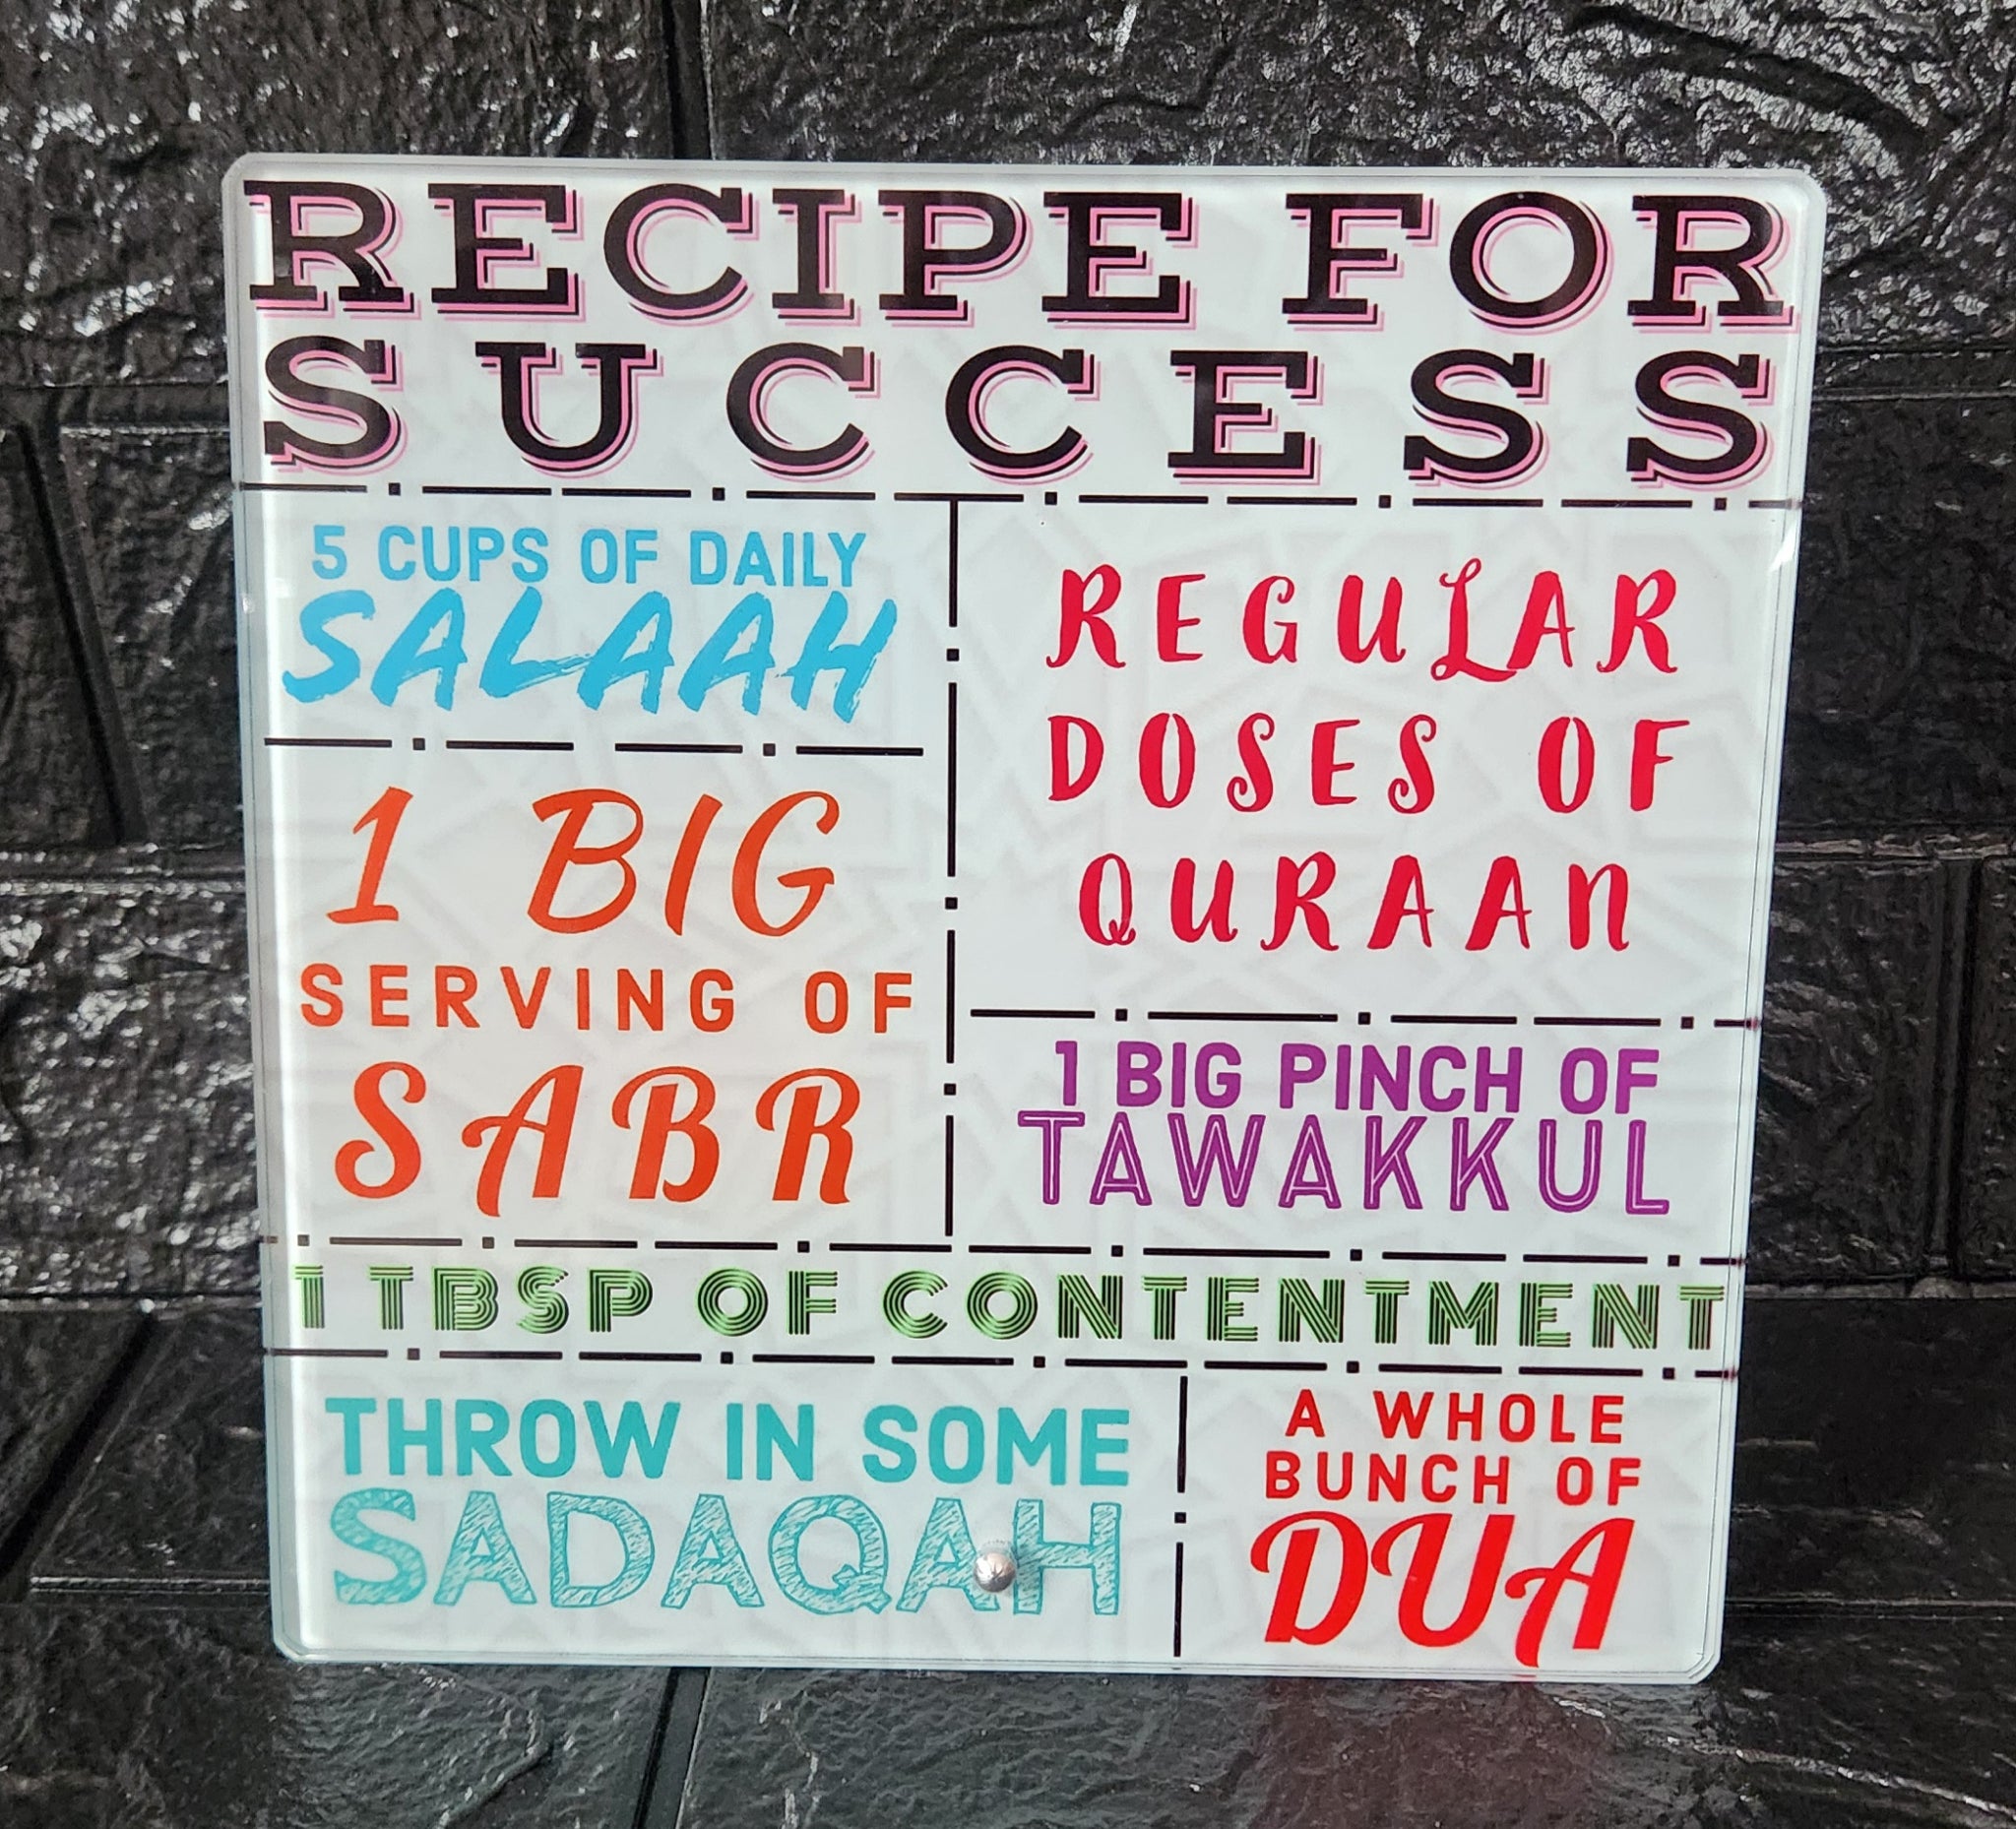 RECIPE FOR
SUCCESS
5 CUPS OF DAILY
SALAAH
1 BIG
SERVING OF
SABR
REGULAR
DOSES OF
QURAAN
1 BIG PINCH OF
TAWAKKUL
1 TBSP OF CONTENTMENT
THROW IN SOME
SADAQAH
A WHOLE
BUNCH OF
DUA